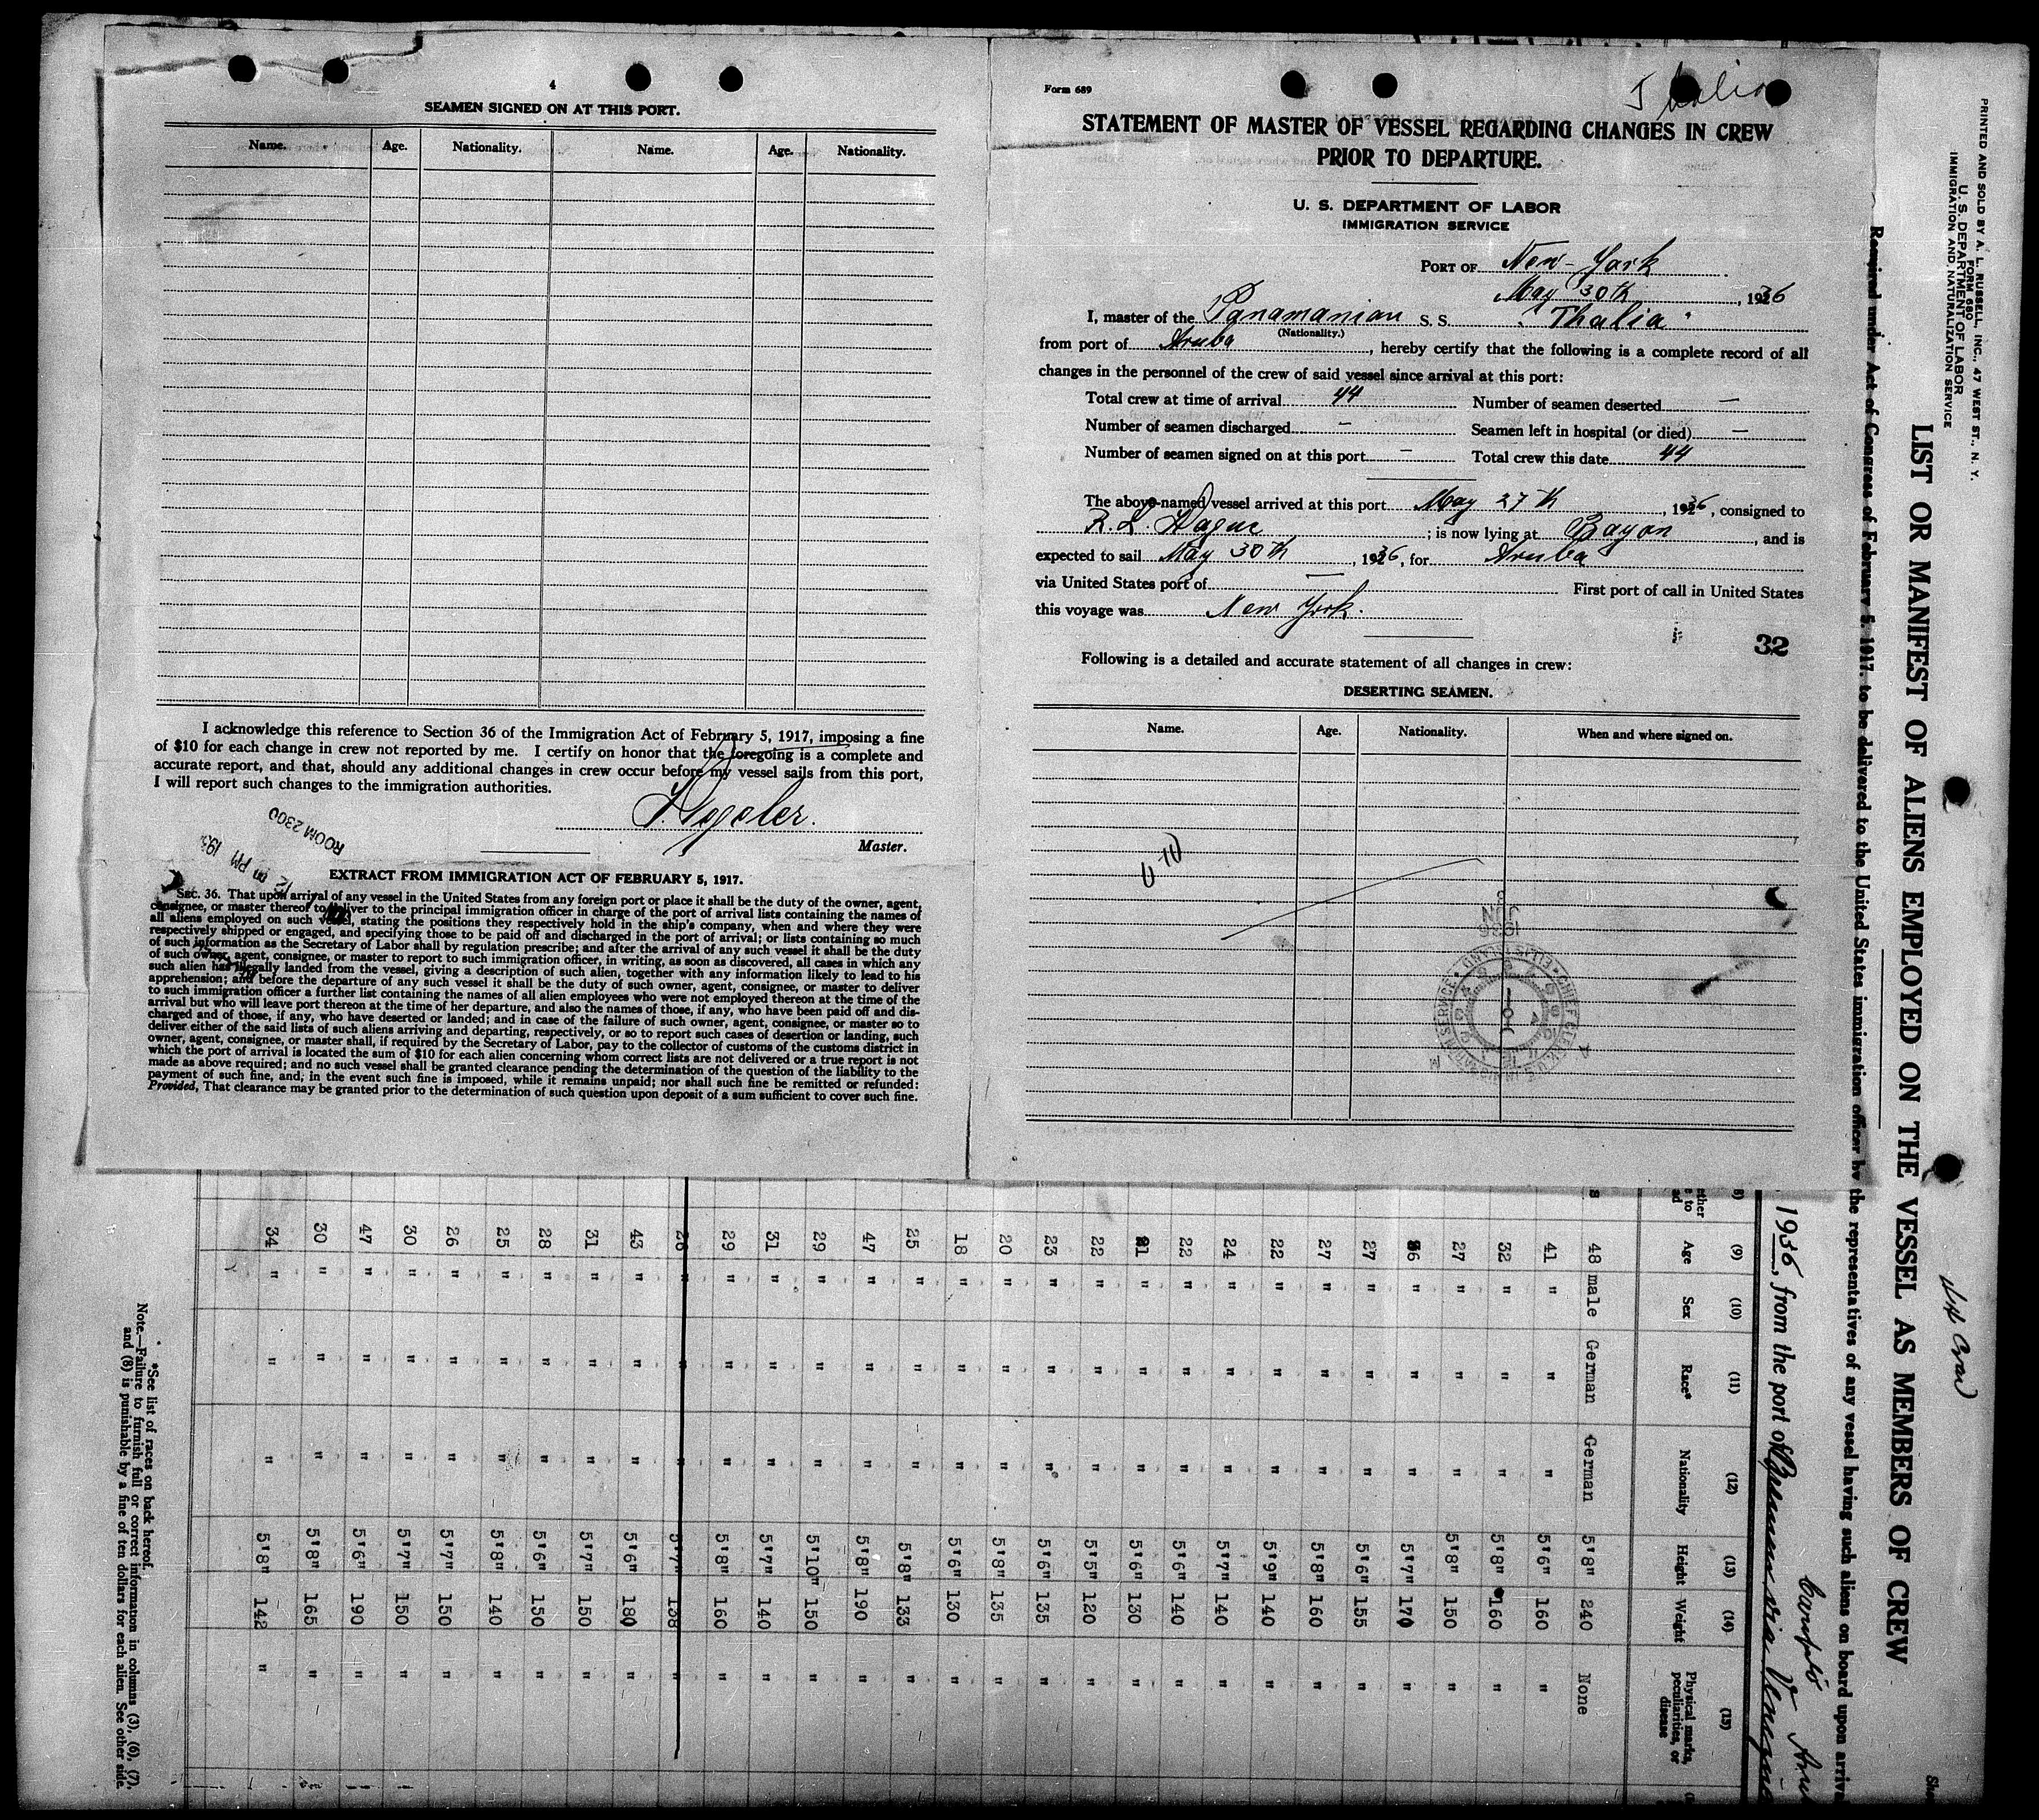 4
SEAMEN SIGNED ON AT THIS PORT.
Name. Age. Nationality. Name. Age. Nationality.
I acknowledge this reference to Section 36 of the Immigration Act of February 5, 1917, imposing a fine
of $10 for each change in crew not reported by me. I certify on honor that the foregoing is a complete and
accurate report, and that, should any additional changes in crew occur before my vessel sails from this port,
I will report such changes to the immigration authorities.
Master.
ROOM 2300
EXTRACT FROM IMMIGRATION ACT OF FEBRUARY 5, 1917.
Sec. 36. That upon arrival of any vessel in the United States from any foreign port or place it shall be the duty of the owner, agent,
consignee, or master thereof to deliver to the principal immigration officer in charge of the port of arrival lists containing the names of
all aliens employed on such vessel, stating the positions they respectively hold in the ship's company, when and where they were
respectively shipped or engaged, and specifying those to be paid off and discharged in the port of arrival; or lists containing so much
of such information as the Secretary of Labor shall by regulation prescribe; and after the arrival of any such vessel it shall be the duty
of such owner, agent, consignee, or master to report to such immigration officer, in writing, as soon as discovered, all cases in which any
such alien has illegally landed from the vessel, giving a description of such alien, together with any information likely to lead to his
apprehension; and before the departure of any such vessel it shall be the duty of such owner, agent, consignee, or master to deliver
to such immigration officer a further list containing the names of all alien employees who were not employed thereon at the time of the
arrival but who will leave port thereon at the time of her departure, and also the names of those, if any, who have been paid off and dis-
charged and of those, if any, who have deserted or landed; and in case of the failure of such owner, agent, consignee, or master so to
deliver either of the said lists of such aliens arriving and departing, respectively, or so to report such cases of desertion or landing, such
owner, agent, consignee, or master shall, if required by the Secretary of Labor, pay to the collector of customs of the customs district in
which the port of arrival is located the sum of $10 for each alien concerning whom correct lists are not delivered or a true report is not
made as above required; and no such vessel shall be granted clearance pending the determination of the question of the liability to the
payment of such fine, and, in the event such fine is imposed, while it remains unpaid; nor shall such fine be remitted or refunded:
Provided, That clearance may be granted prior to the determination of such question upon deposit of a sum sufficient to cover such fine.
Form 689
Thalia
STATEMENT OF MASTER OF VESSEL REGARDING CHANGES IN CREW
PRIOR TO DEPARTURE.
U. S. DEPARTMENT OF LABOR
IMMIGRATION SERVICE
PORT OF New-York
May 30th, 1936
I, master of the Panamanian S. S. "Thalia"
(Nationality.)
from port of Aruba, hereby certify that the following is a complete record of all
changes in the personnel of the crew of said vessel since arrival at this port:
Total crew at time of arrival 44 Number of seamen deserted —
Number of seamen discharged — Seamen left in hospital (or died) —
Number of seamen signed on at this port — Total crew this date 44
The above-named vessel arrived at this port May 27th, 1936, consigned to
R. L. Hague; is now lying at Bayon, and is
expected to sail May 30th, 1936, for Aruba
via United States port of — First port of call in United States
this voyage was New York.
32
Following is a detailed and accurate statement of all changes in crew:
DESERTING SEAMEN.
Name. Age. Nationality. When and where signed on.
1936
JUN
PRINTED AND SOLD BY A. L. RUSSELL, INC., 47 WEST ST., N. Y.
FORM 680
U. S. DEPARTMENT OF LABOR
IMMIGRATION AND NATURALIZATION SERVICE
LIST OR MANIFEST OF ALIENS EMPLOYED ON THE VESSEL AS MEMBERS OF CREW
Required under Act of Congress of February 5, 1917, to be delivered to the United States immigration officer by the representatives of any vessel having such aliens on board upon
1936, from the port of
(9) (10) (11) (12) (13) (14) (15)
Age Sex Race* Nationality Height Weight Physical marks, peculiarities, or disease
48 male German German 5'8" 240 None
41 " " " 5'6" 160 "
32 " " " 5'8" 160 "
27 " " " 5'8" 150 "
36 " " " 5'7" 170 "
27 " " " 5'6" 155 "
27 " " " 5'8" 160 "
22 " " " 5'9" 140 "
24 " " " 5'7" 140 "
22 " " " 5'6" 140 "
21 " " " 5'6" 130 "
22 " " " 5'5" 120 "
23 " " " 5'6" 135 "
20 " " " 5'8" 135 "
18 " " " 5'6" 130 "
25 " " " 5'8" 133 "
47 " " " 5'8" 190 "
29 " " " 5'10" 150 "
31 " " " 5'7" 140 "
29 " " " 5'8" 160 "
26 " " " 5'7" 138 "
43 " " " 5'6" 180 "
31 " " " 5'7" 150 "
28 " " " 5'6" 150 "
25 " " " 5'8" 140 "
26 " " " 5'7" 150 "
30 " " " 5'7" 150 "
47 " " " 5'6" 190 "
30 " " " 5'8" 165 "
34 " " " 5'8" 142 "
*See list of races on back hereof.
Note.—Failure to furnish full or correct information in columns (3), (6), (7),
and (8) is punishable by a fine of ten dollars for each alien. See other side.